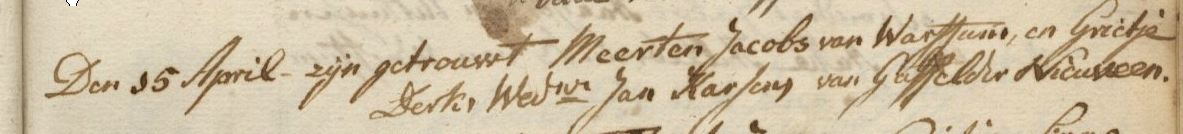 Den 15 April - zijn getrouwt Meerten Jacobs van Warffum, en Grietje
Derks Wedwe Jan Karsens van Gasselder Nieuveen.